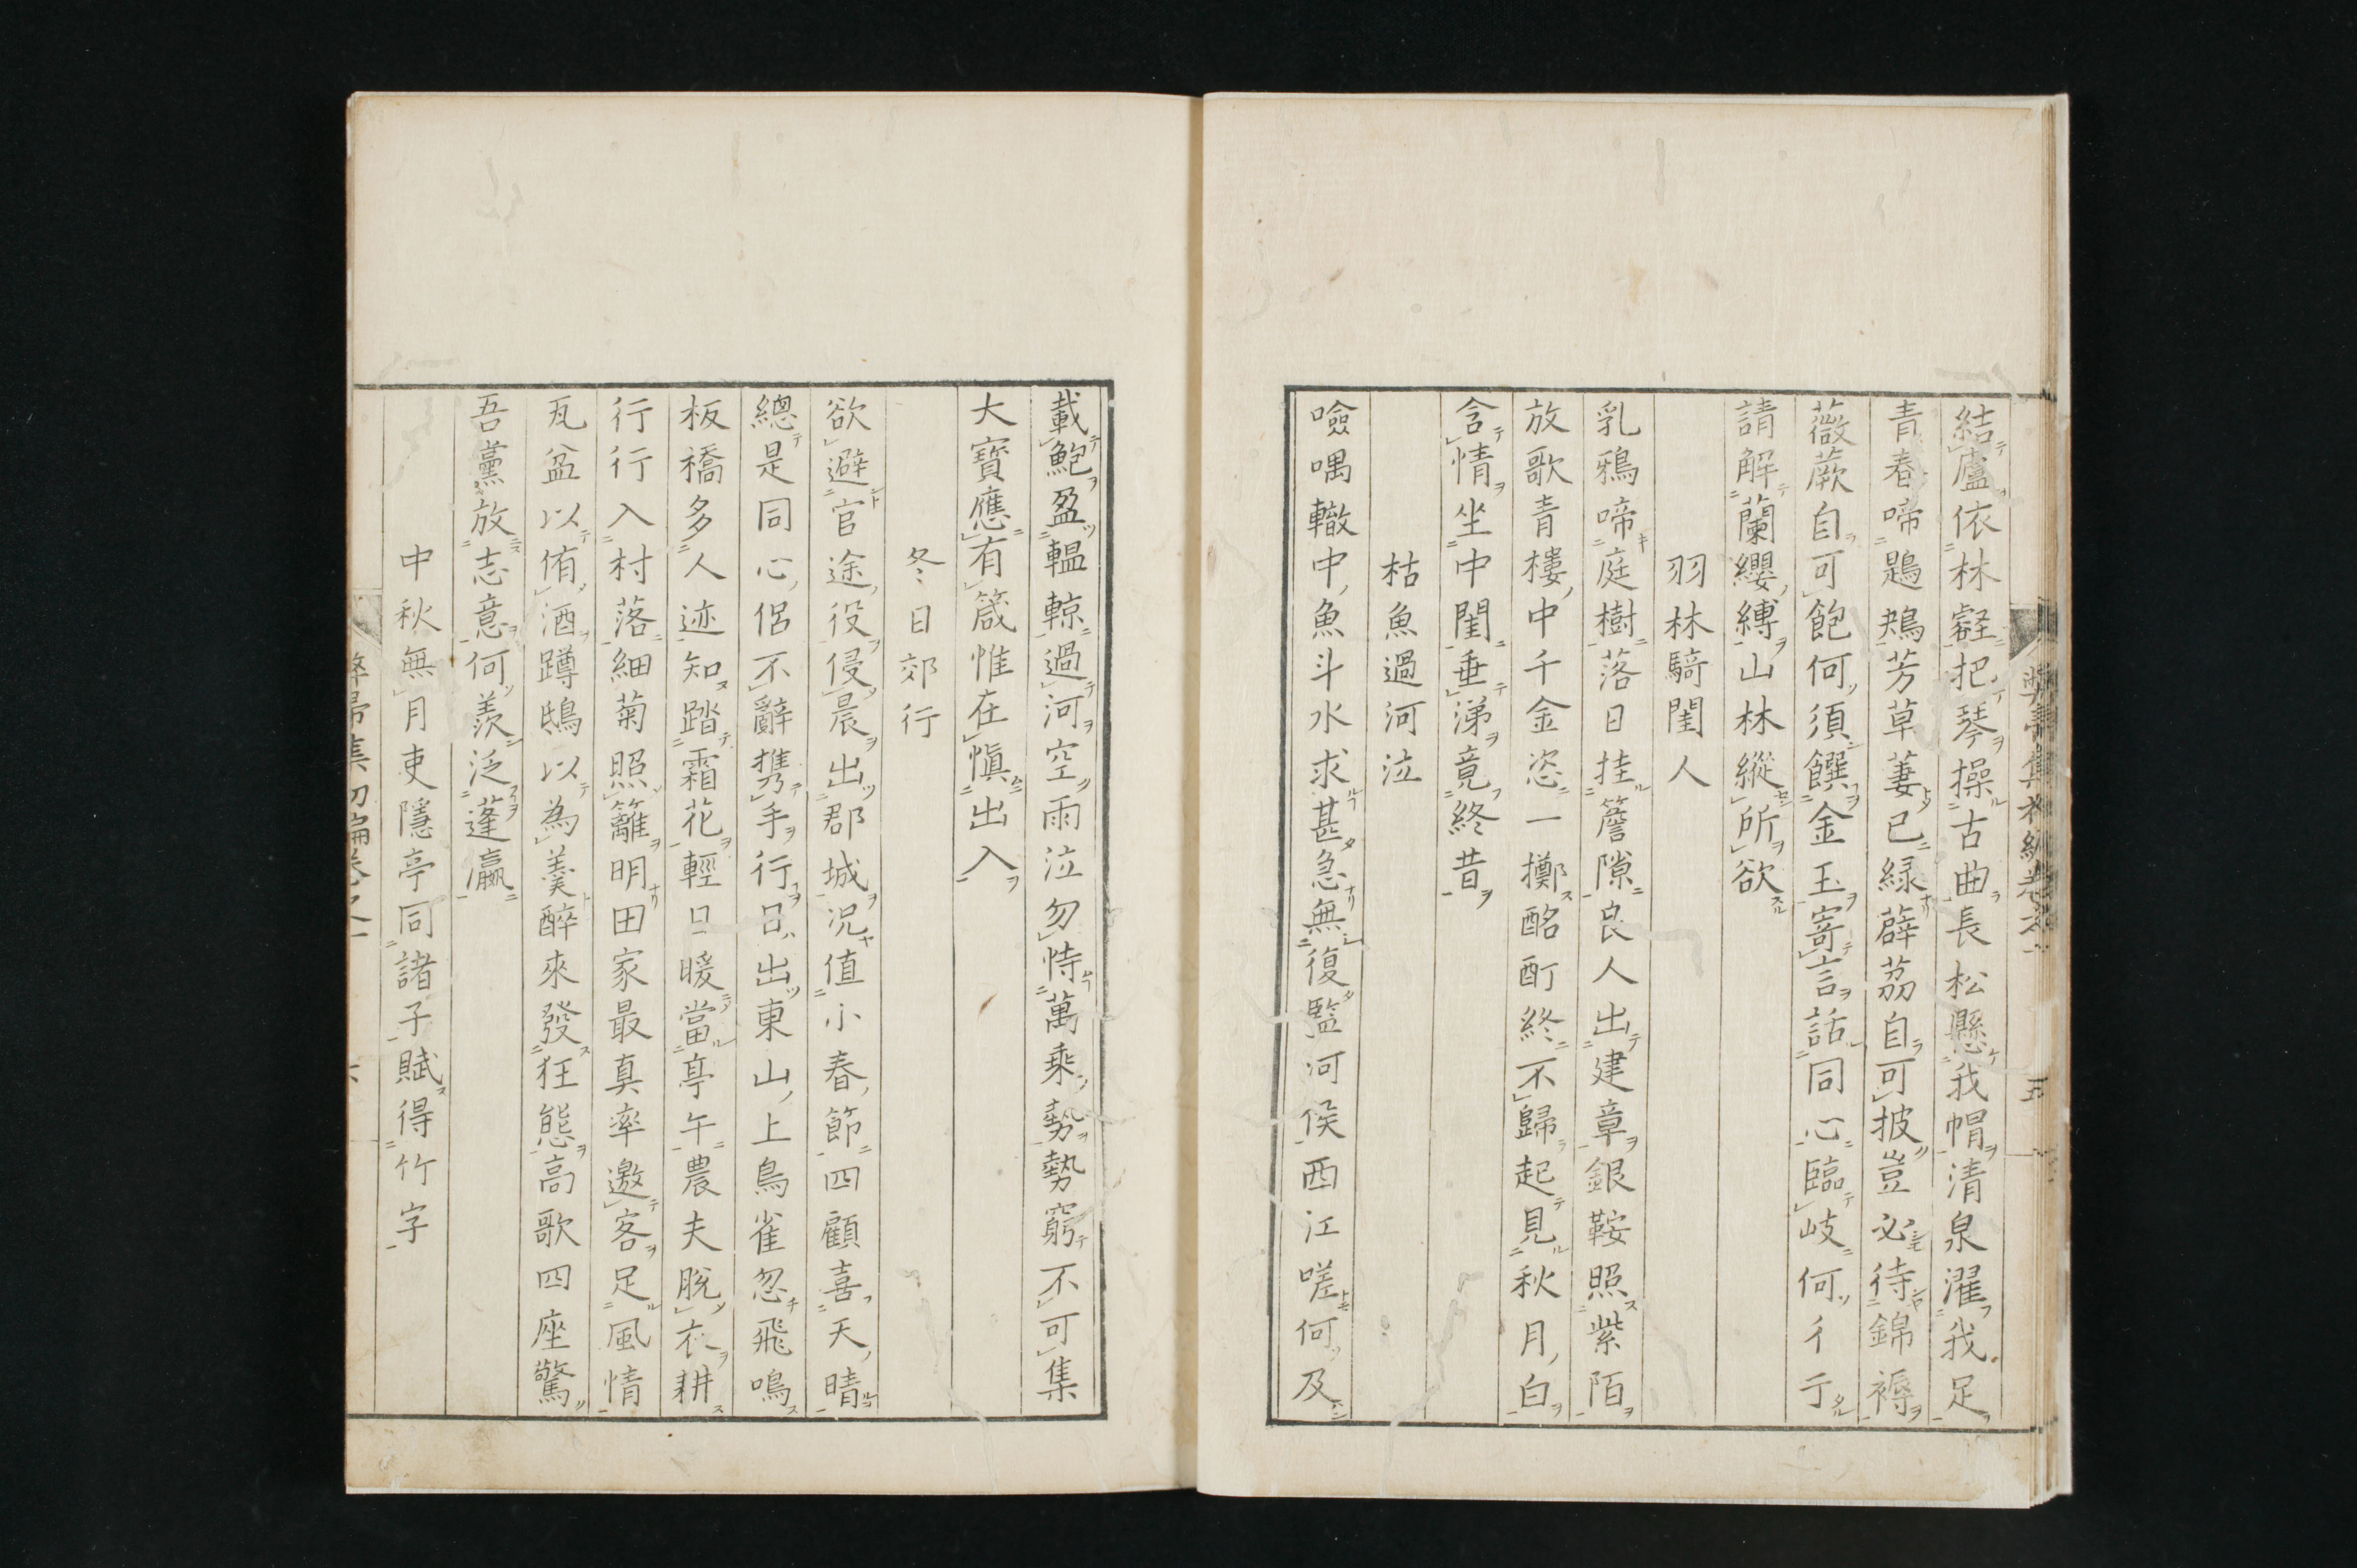 結廬依林壑把琴操古曲長松懸我帽清泉濯我足
青春啼鶗鴂芳草萋已緑薜荔自可披豈必待錦褥
薇蕨自可飽何須饌金玉寄言話同心臨岐何彳亍
請解蘭纓縛山林縱所欲
羽林騎閨人
乳鴉啼庭樹落日挂簷隙良人出建章銀鞍照紫陌
放歌青樓中千金恣一擲酩酊終不歸起見秋月白
含情坐中閨垂涕竟終昔
枯魚過河泣
噞喁轍中魚斗水求甚急無復監河侯西江嗟何及
載鮑盈轀輬過河空雨泣勿恃萬乘勢勢窮不可集
大寳應有箴惟在愼出入
冬日郊行
欲避官途役侵晨出郡城况值小春節四顧喜天晴
總是同心侶不辭携手行日出東山上鳥雀忽飛鳴
板橋多人迹知踏霜花輕日暖當亭午農夫脫衣耕
行行入村落細菊照籬明田家最真率邀客足風情
瓦盆以侑酒蹲鴟以為羹醉來發狂態高歌四座驚
吾黨放志意何羨泛蓬瀛
中秋無月吏隱亭同諸子賦得竹字